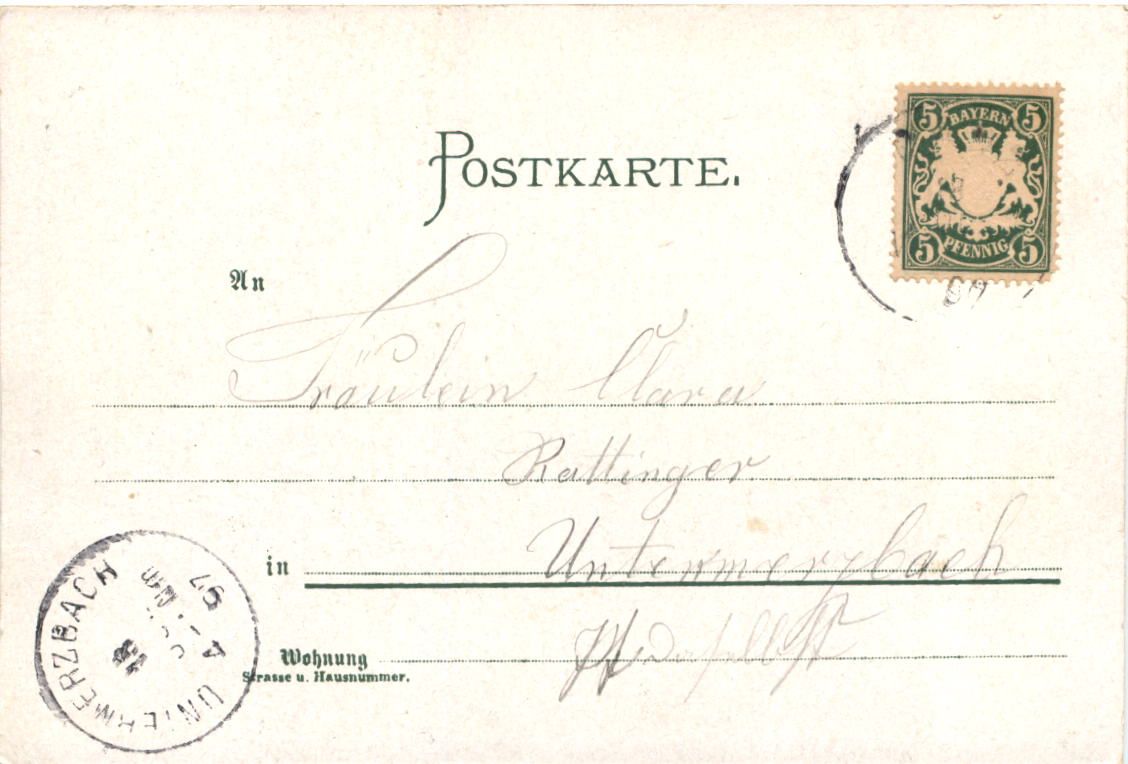 POSTKARTE.
5 BAYERN 5
5 PFENNIG 5
An
Fräulein Clara
Rattinger
in Untermerzbach
Wohnung daselbst
Strasse u. Hausnummer.
UNTERMERZBACH
97